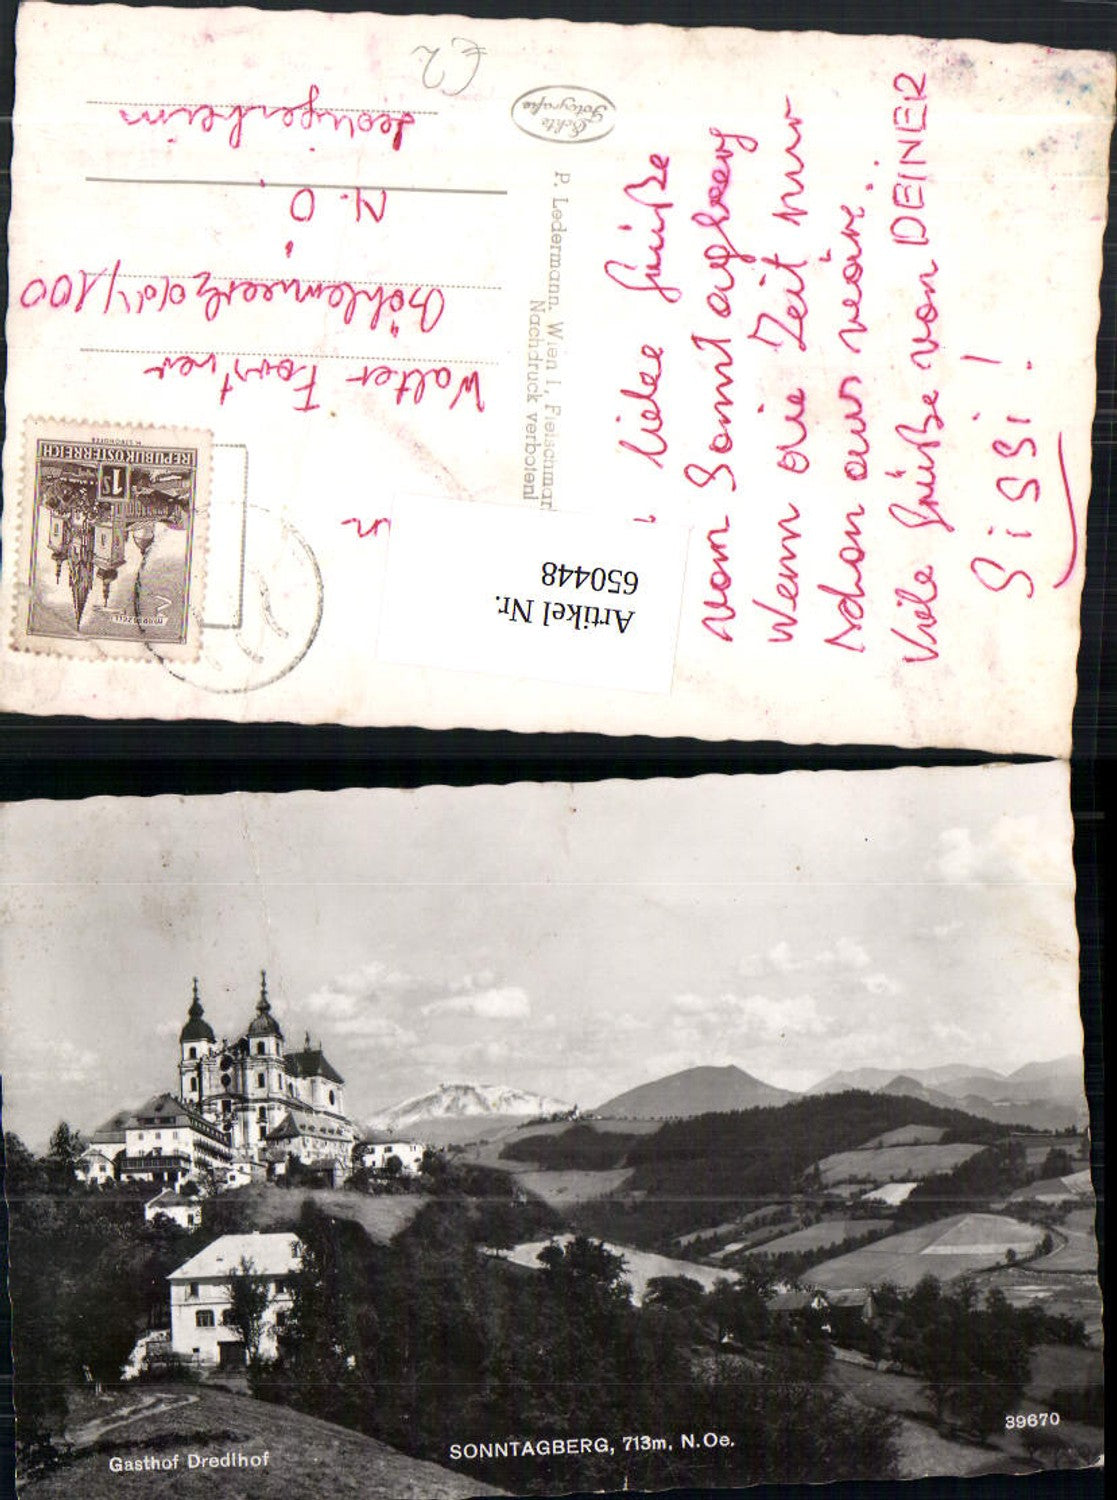 €2
Echte
Fotografie
Viele Grüße
vom Sonntagberg
Wenn die Zeit nur
schon aus wäre..
Viele Grüße von DEINER
SiSSi!
P. Ledermann, Wien I, Fleischmar
Nachdruck verboten!
REPUBLIK ÖSTERREICH
1S
MARIAZELL
Walter Forstner
N.Ö.
Artikel Nr.
650448
Gasthof Dredlhof
SONNTAGBERG, 713m, N.Oe.
39670